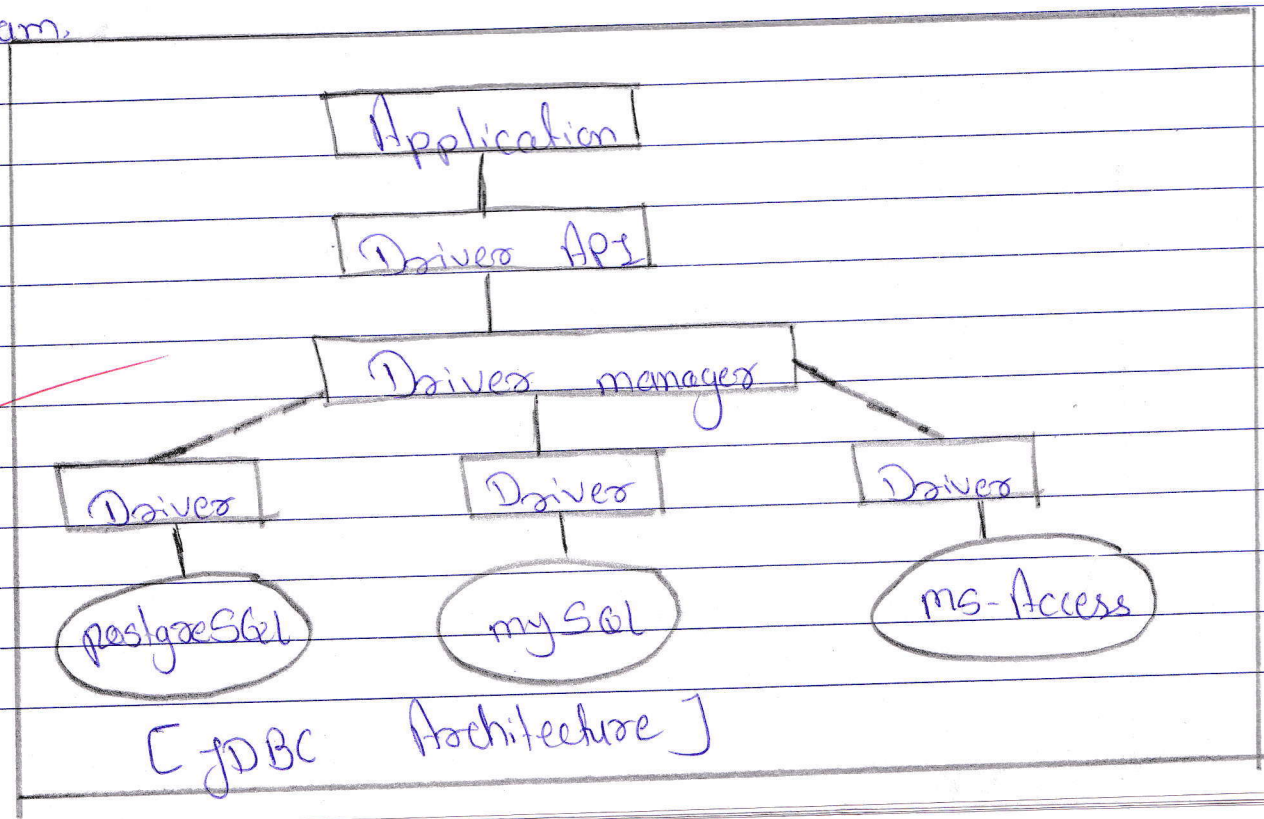 am.
Application
Driver API
Driver manager
Driver Driver Driver
postgreSQL mySQL ms-Access
[JDBC Architecture]